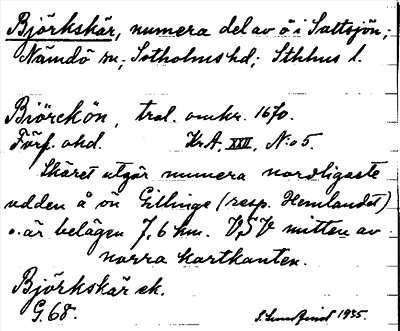 Björkskär, numera del av ö i Saltsjön;
Nämdö sn; Sotholms hd; Sthlms l.
Biörckön, trol. omkr. 1670.
Förf. okd. Kr.A, XXII, N:o 5.
Skäret utgör numera nordligaste
udden å ön Gillinge (resp. Hemlandet)
o. är belägen 7,6 km. V,S V mitten av
norra kartkanten.
Björkskär ek.
G. 68. 1935.